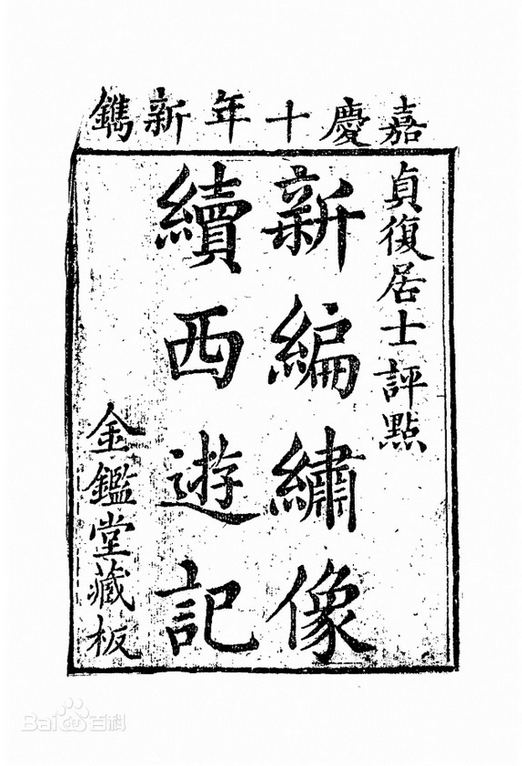 嘉慶十年新鐫
貞復居士評點
新編繡像
續西遊記
金鑑堂藏板
Bai百科